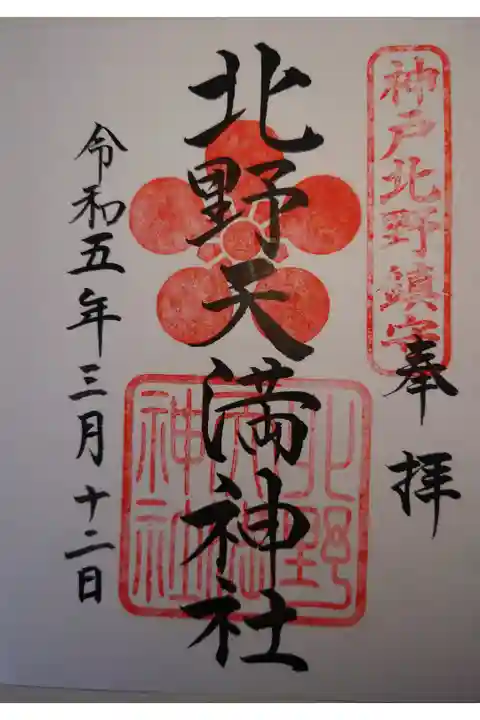 神戸北野鎮守
奉拝
北野天満神社
北野
天満
神社
令和五年三月十二日